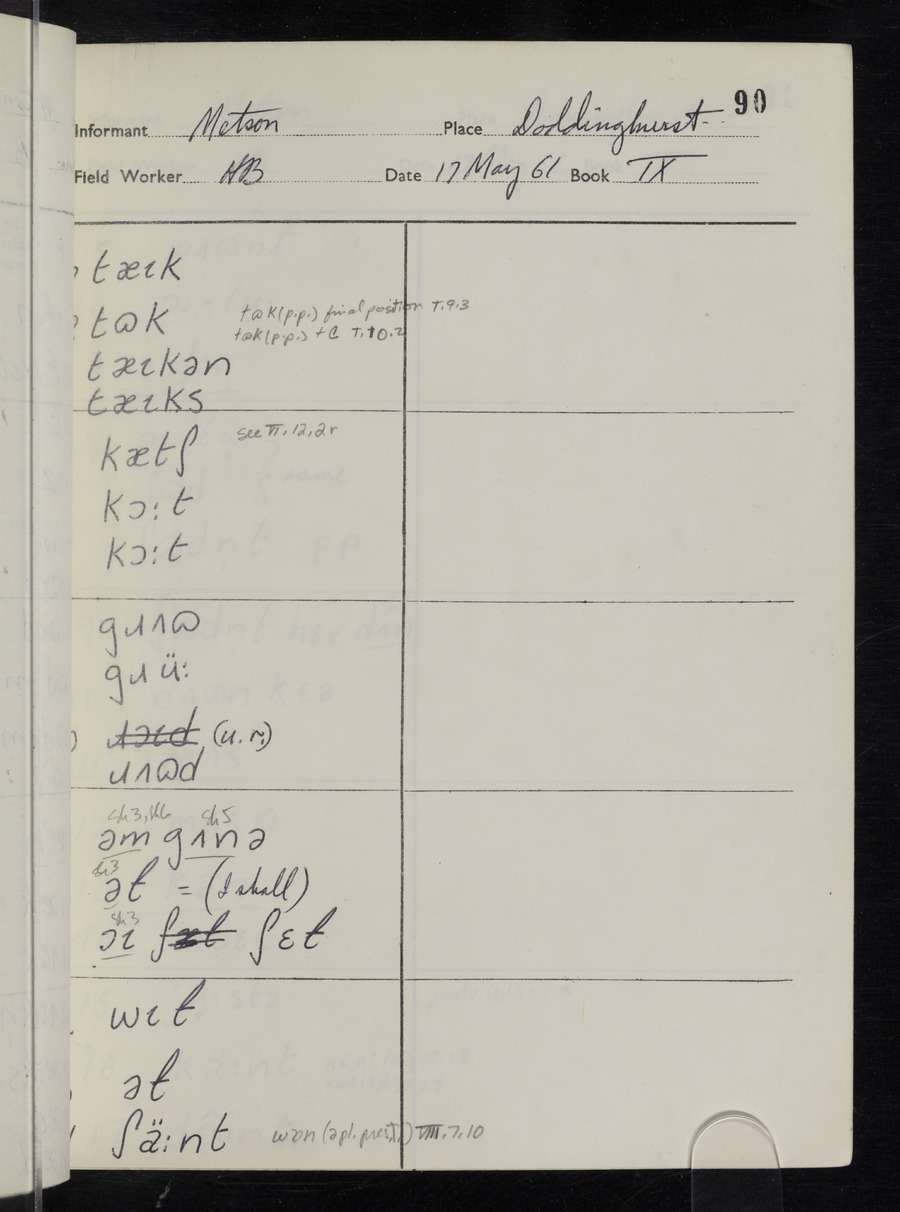 90
Informant Metson Place Doddinghurst
Field Worker HB Date 17 May 61 Book IX
tæɪk
tɷk tɷk (p.p.) final position T.9.3
tɷk (p.p.) + C T.10.2
tæɪkən
tæɪks
kætʃ see VI.12,2r
kɔ:t
kɔ:t
gɹʌɷ
gɹü:
(u.r.)
ɹʌɷd
sh3, sh5
əm gʌnə
sh3
ət = (I shall)
sh3
ɔɪ ʃɛt
wɪt
ət
ʃä:nt won (3pl. prest.) VIII.7.10